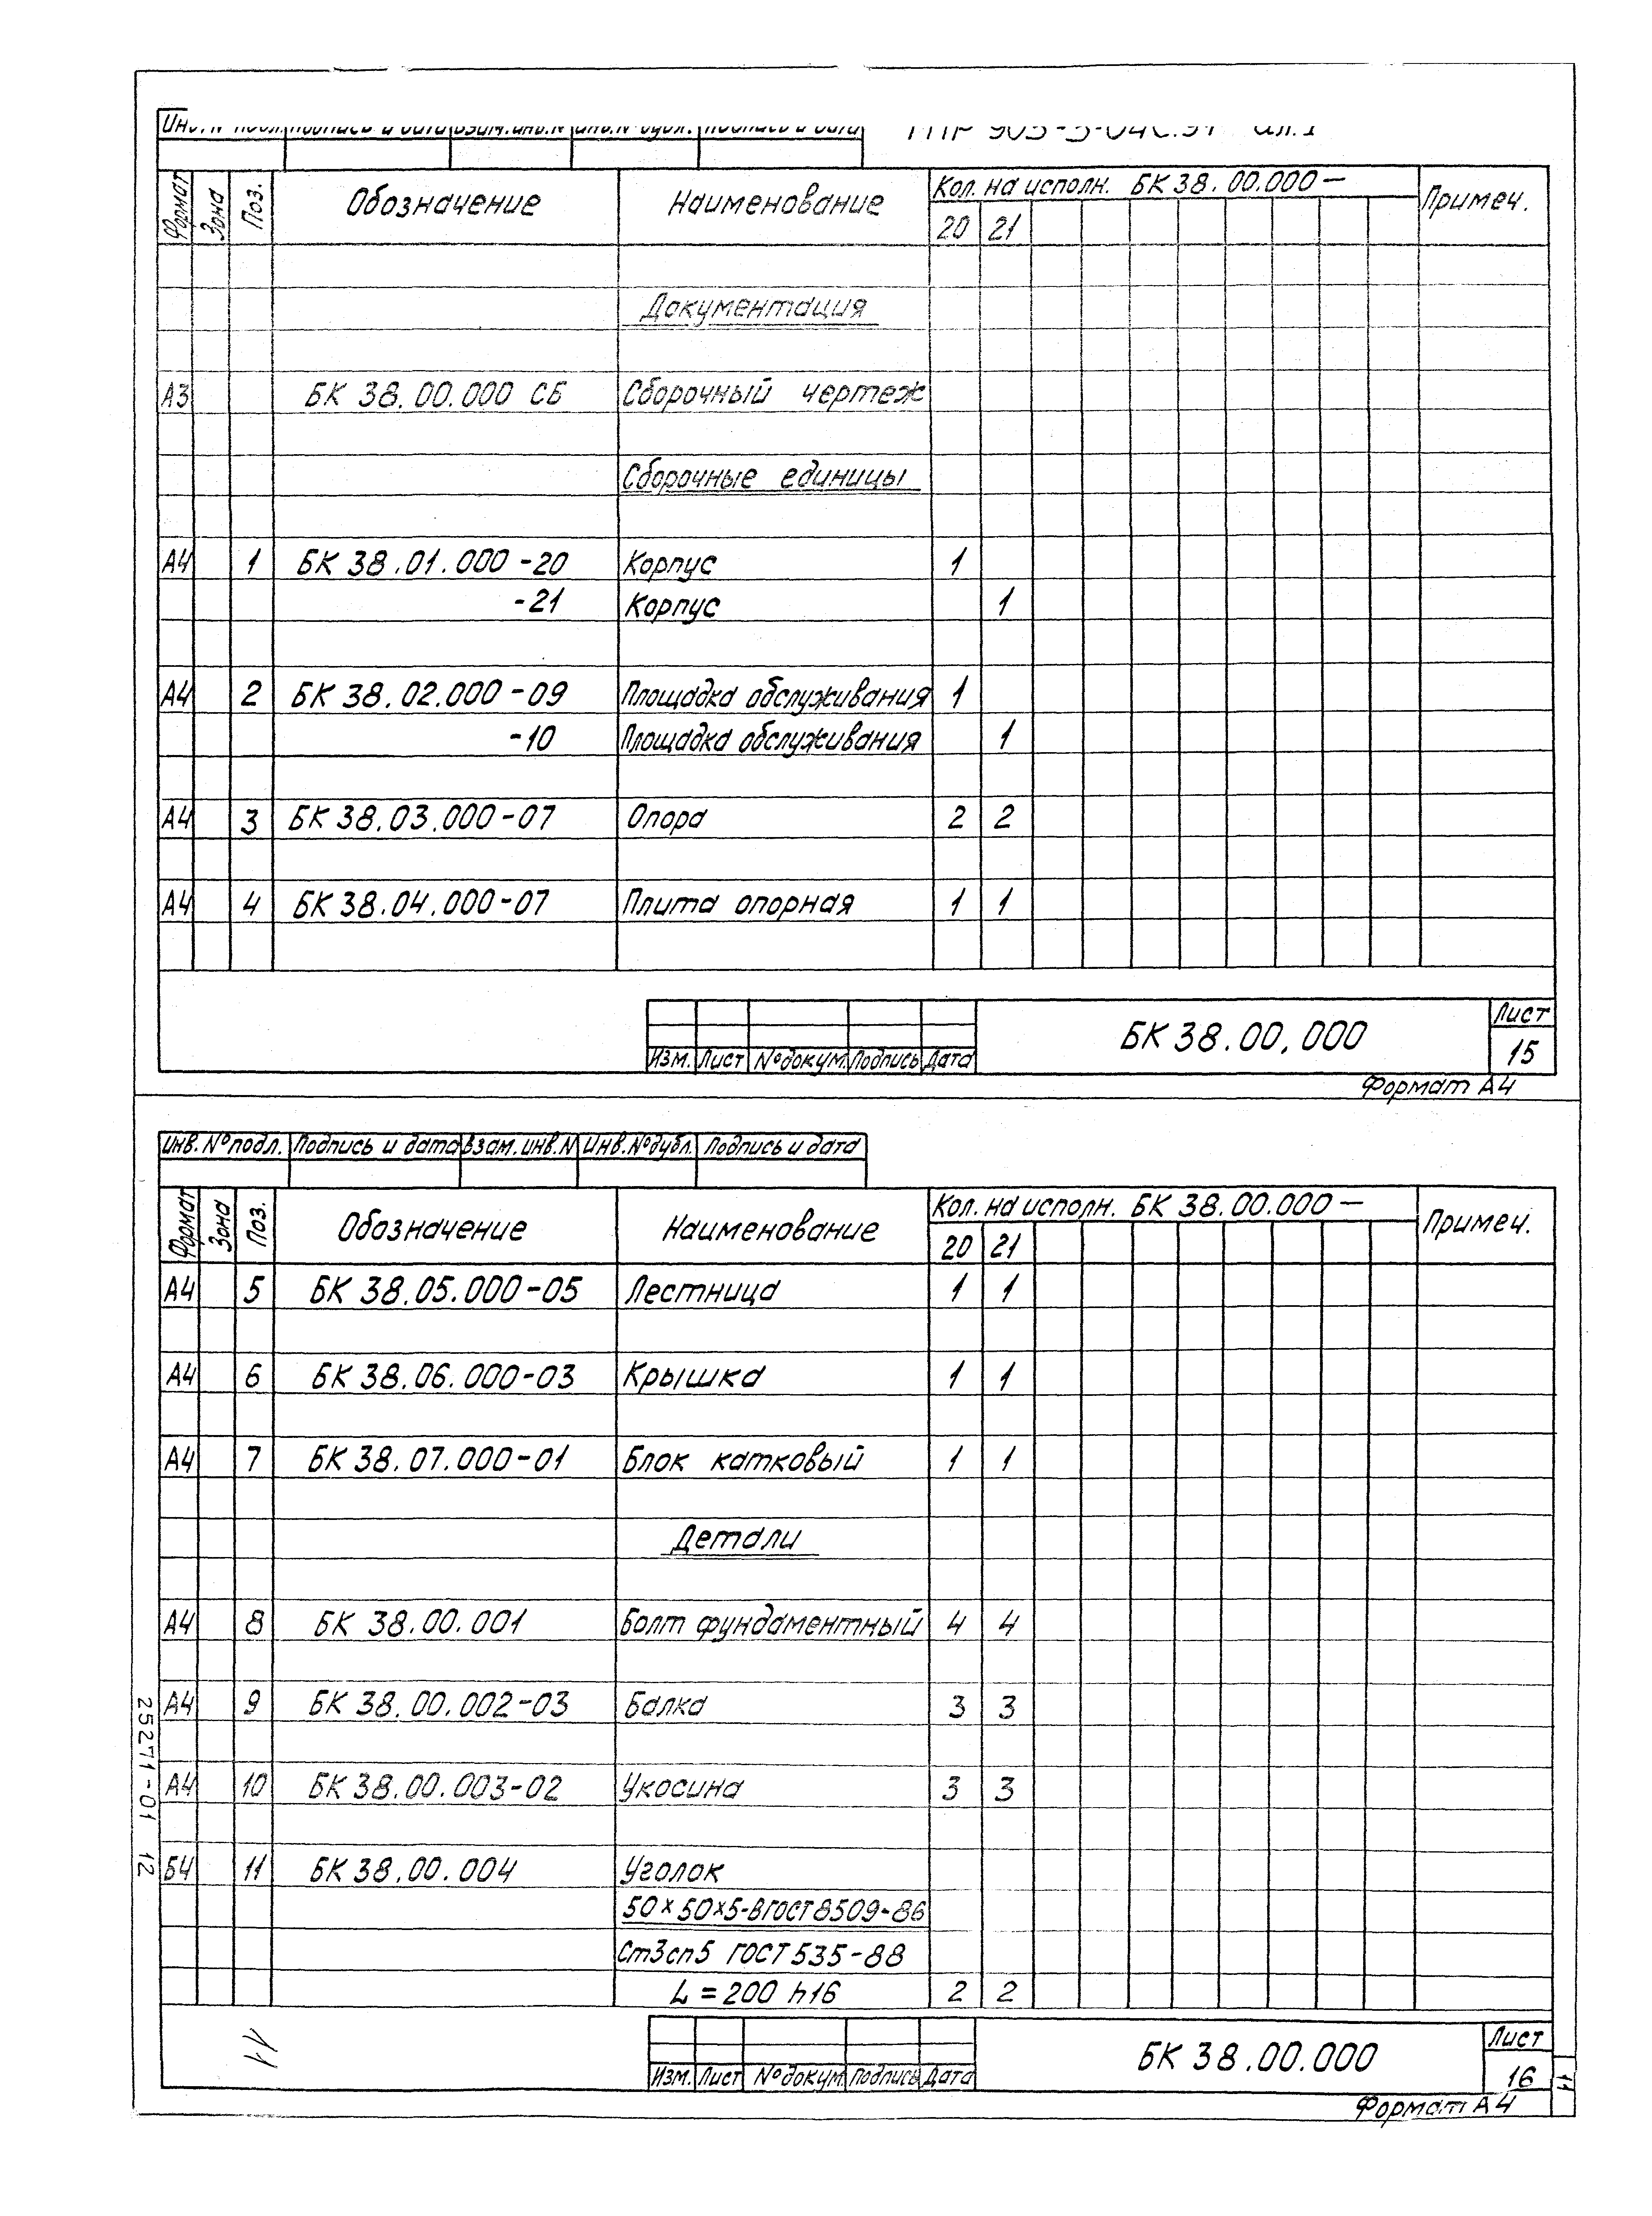 Инв. № подл. Подпись и дата Взам. инв. № Инв. № дубл. Подпись и дата
Формат Зона Поз. Обозначение Наименование Кол. на исполн. БК 38.00.000— Примеч.
20 21
Документация
А3 БК 38.00.000 СБ Сборочный чертеж
Сборочные единицы
А4 1 БК 38.01.000-20 Корпус 1
-21 Корпус 1
А4 2 БК 38.02.000-09 Площадка обслуживания 1
-10 Площадка обслуживания 1
А4 3 БК 38.03.000-07 Опора 2 2
А4 4 БК 38.04.000-07 Плита опорная 1 1
БК 38.00,000
Лист
15
Изм. Лист № докум. Подпись Дата
Формат А4
Инв. № подл. Подпись и дата Взам. инв. № Инв. № дубл. Подпись и дата
Формат Зона Поз. Обозначение Наименование Кол. на исполн. БК 38.00.000— Примеч.
20 21
А4 5 БК 38.05.000-05 Лестница 1 1
А4 6 БК 38.06.000-03 Крышка 1 1
А4 7 БК 38.07.000-01 Блок катковый 1 1
Детали
А4 8 БК 38.00.001 Болт фундаментный 4 4
А4 9 БК 38.00.002-03 Балка 3 3
А4 10 БК 38.00.003-02 Укосина 3 3
Б4 11 БК 38.00.004 Уголок
50×50×5-В ГОСТ 8509-86
Ст3сп5 ГОСТ 535-88
L = 200 h16 2 2
БК 38.00.000
Лист
16
Изм. Лист № докум. Подпись Дата
Формат А4
25271-01 12
11
11